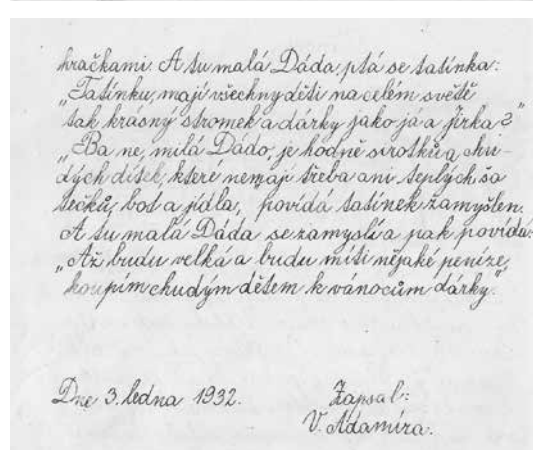 hračkami. A tu malá Dáda ptá se tatínka:
„Tatínku, mají všechny děti na celém světě
tak krasný stromek a dárky jako já a Jirka?"
„Ba ne, milá Dádo, je hodně sirotků a chu-
dých dítek, které nemají třeba ani teplých ša
tečků, bot a jídla, povídá tatínek zamyšlen.
A tu malá Dáda se zamyslí a pak povídá:
„Až budu velká a budu míti nějaké peníze,
koupím chudým dětem k vánocům dárky."
Dne 3. ledna 1932.
Zapsal:
V. Adamíra.